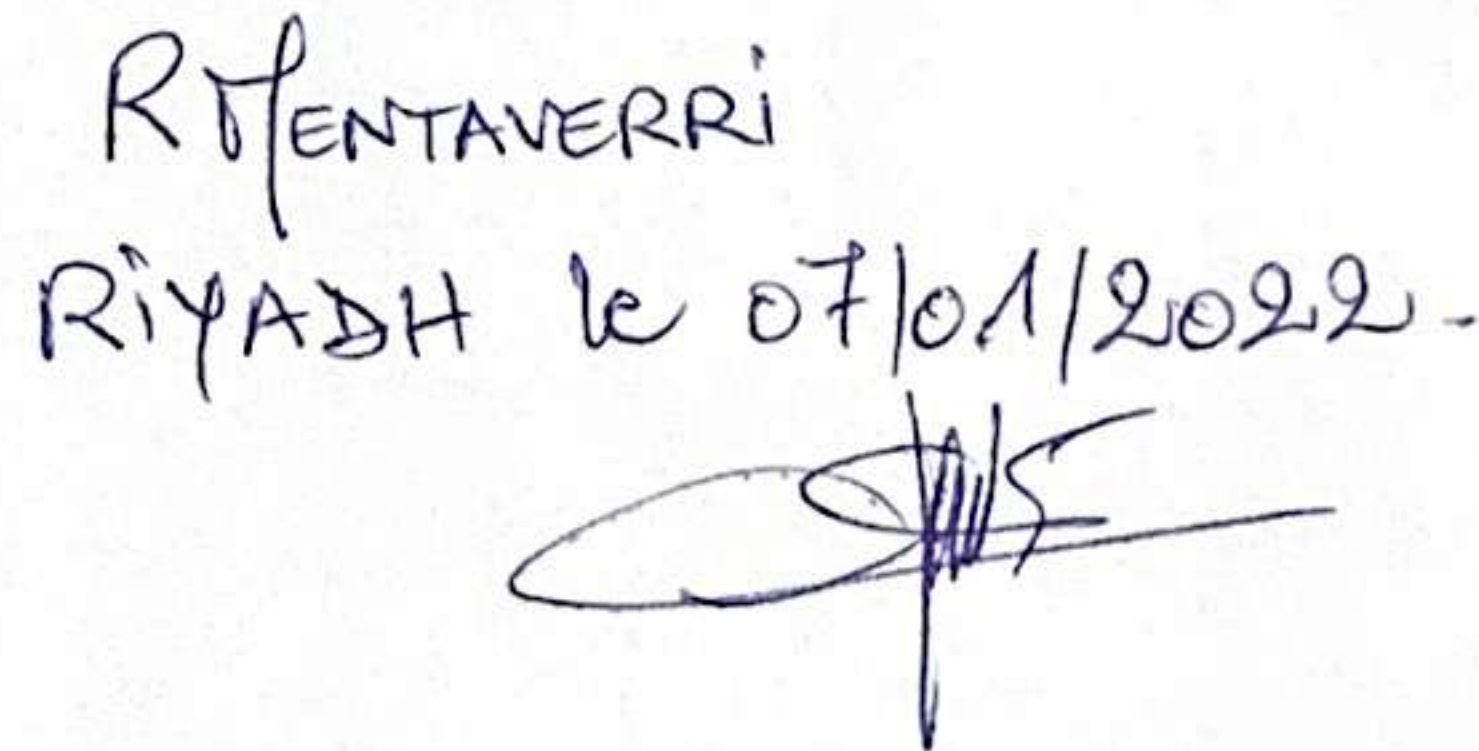 R MENTAVERRi
RiYADH le 07/01/2022.